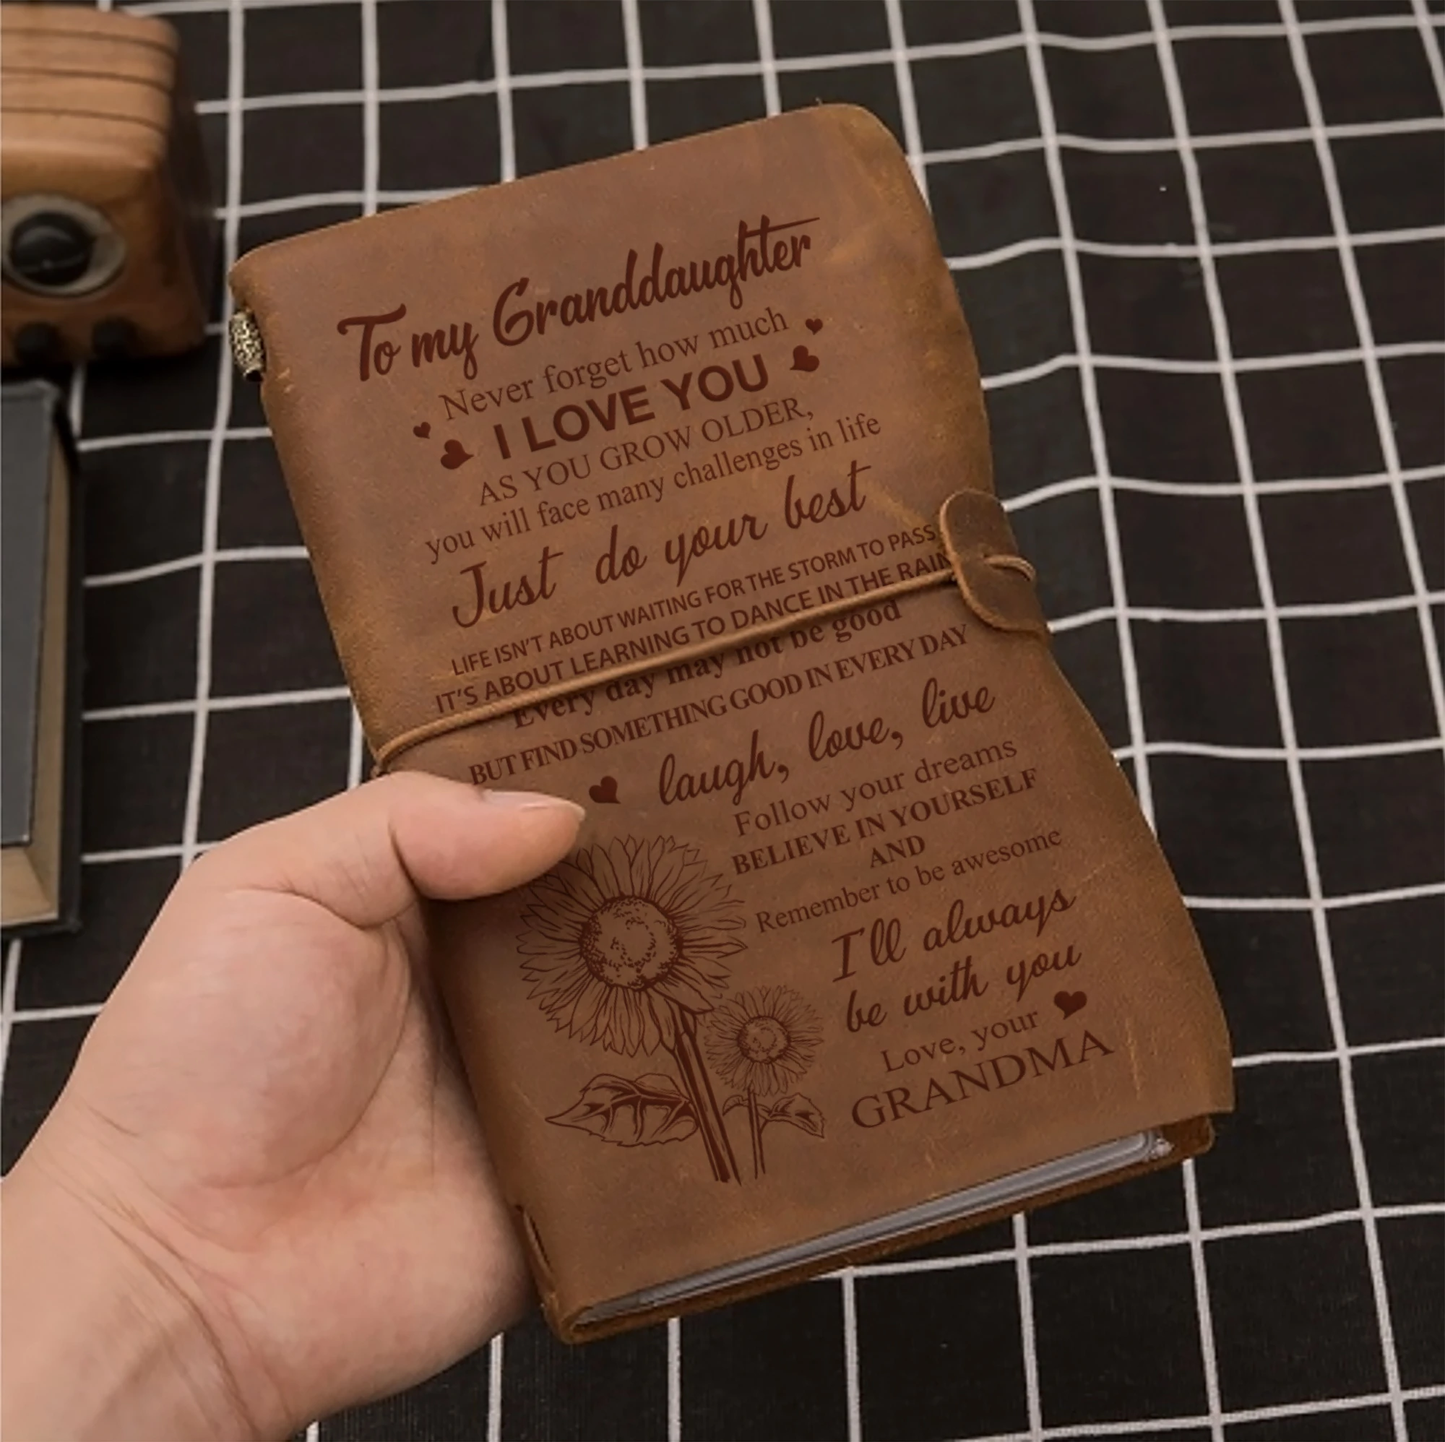 To my Granddaughter
Never forget how much
I LOVE YOU
AS YOU GROW OLDER,
you will face many challenges in life
Just do your best
LIFE ISN'T ABOUT WAITING FOR THE STORM TO PASS
IT'S ABOUT LEARNING TO DANCE IN THE RAIN
Every day may not be good
BUT FIND SOMETHING GOOD IN EVERY DAY
laugh, love, live
Follow your dreams
BELIEVE IN YOURSELF
AND
Remember to be awesome
I'll always
be with you
Love, your
GRANDMA